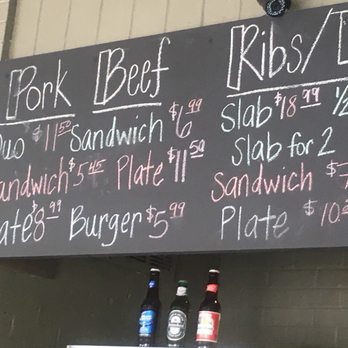 Pork Beef Ribs/
Duo $11.50 Sandwich $6.99 Slab $18.99 1/2
Sandwich $5.45 Plate $11.50 Slab for 2
Plate $8.99 Burger $5.99 Sandwich $
Plate $10.